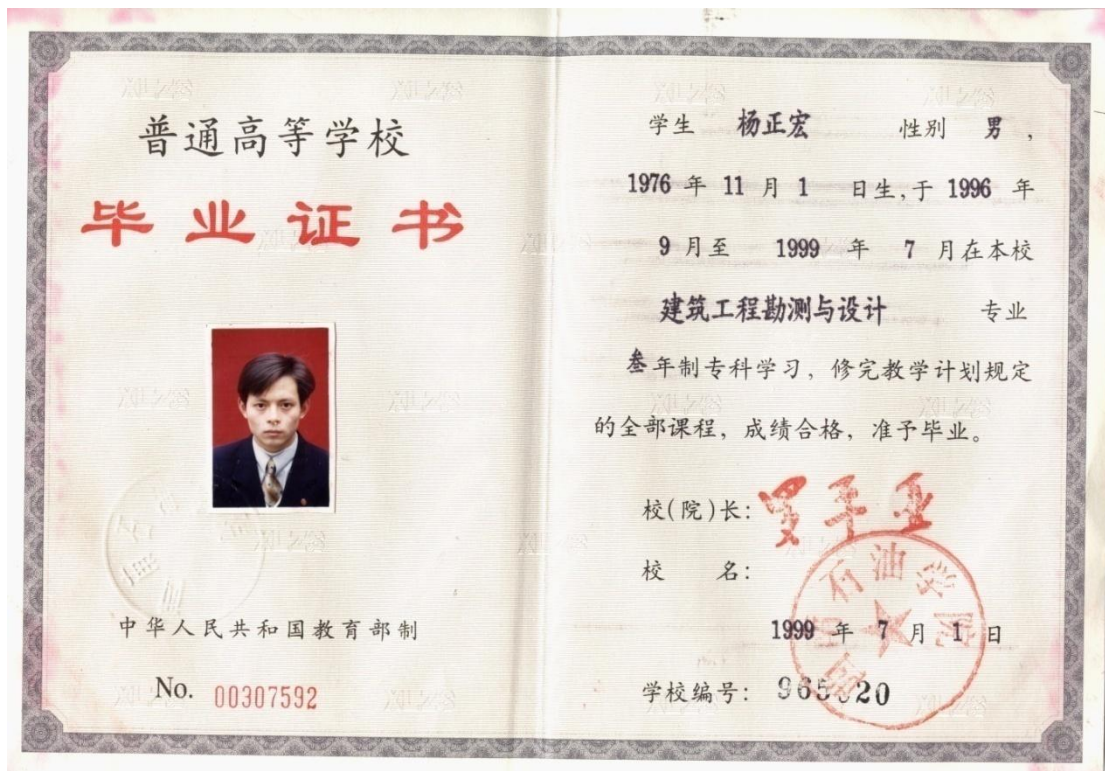 普通高等学校
毕业证书
中华人民共和国教育部制
No. 00307592
学生 杨正宏 性别 男,
1976 年 11 月 1 日生,于 1996 年
9 月至 1999 年 7 月在本校
建筑工程勘测与设计 专业
叁年制专科学习,修完教学计划规定
的全部课程,成绩合格,准予毕业。
校(院)长: 罗平亚
校 名: 西南石油学院
1999 年 7 月 1 日
学校编号: